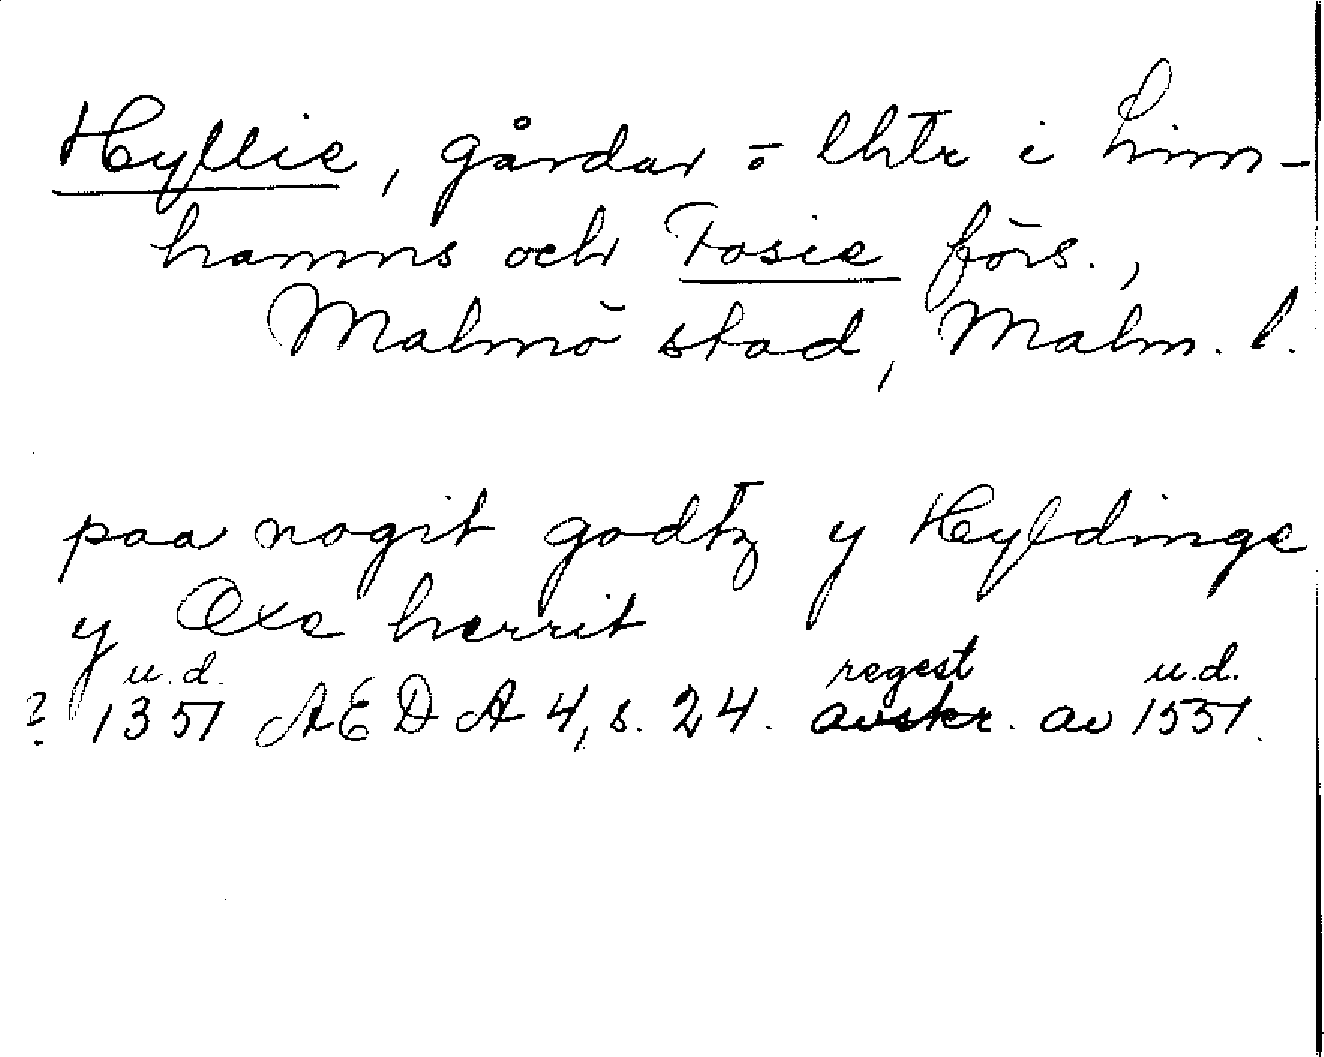 Hyllie, gårdar o lhtr i Lim-
hamns och Fosie förs.,
Malmö stad, Malm. l.
paa nogit godtz y Hyldinge
y Oxe herrit
u.d. regest u.d.
? 1351 ÆDA 4, s. 24. avskr. av 1551.